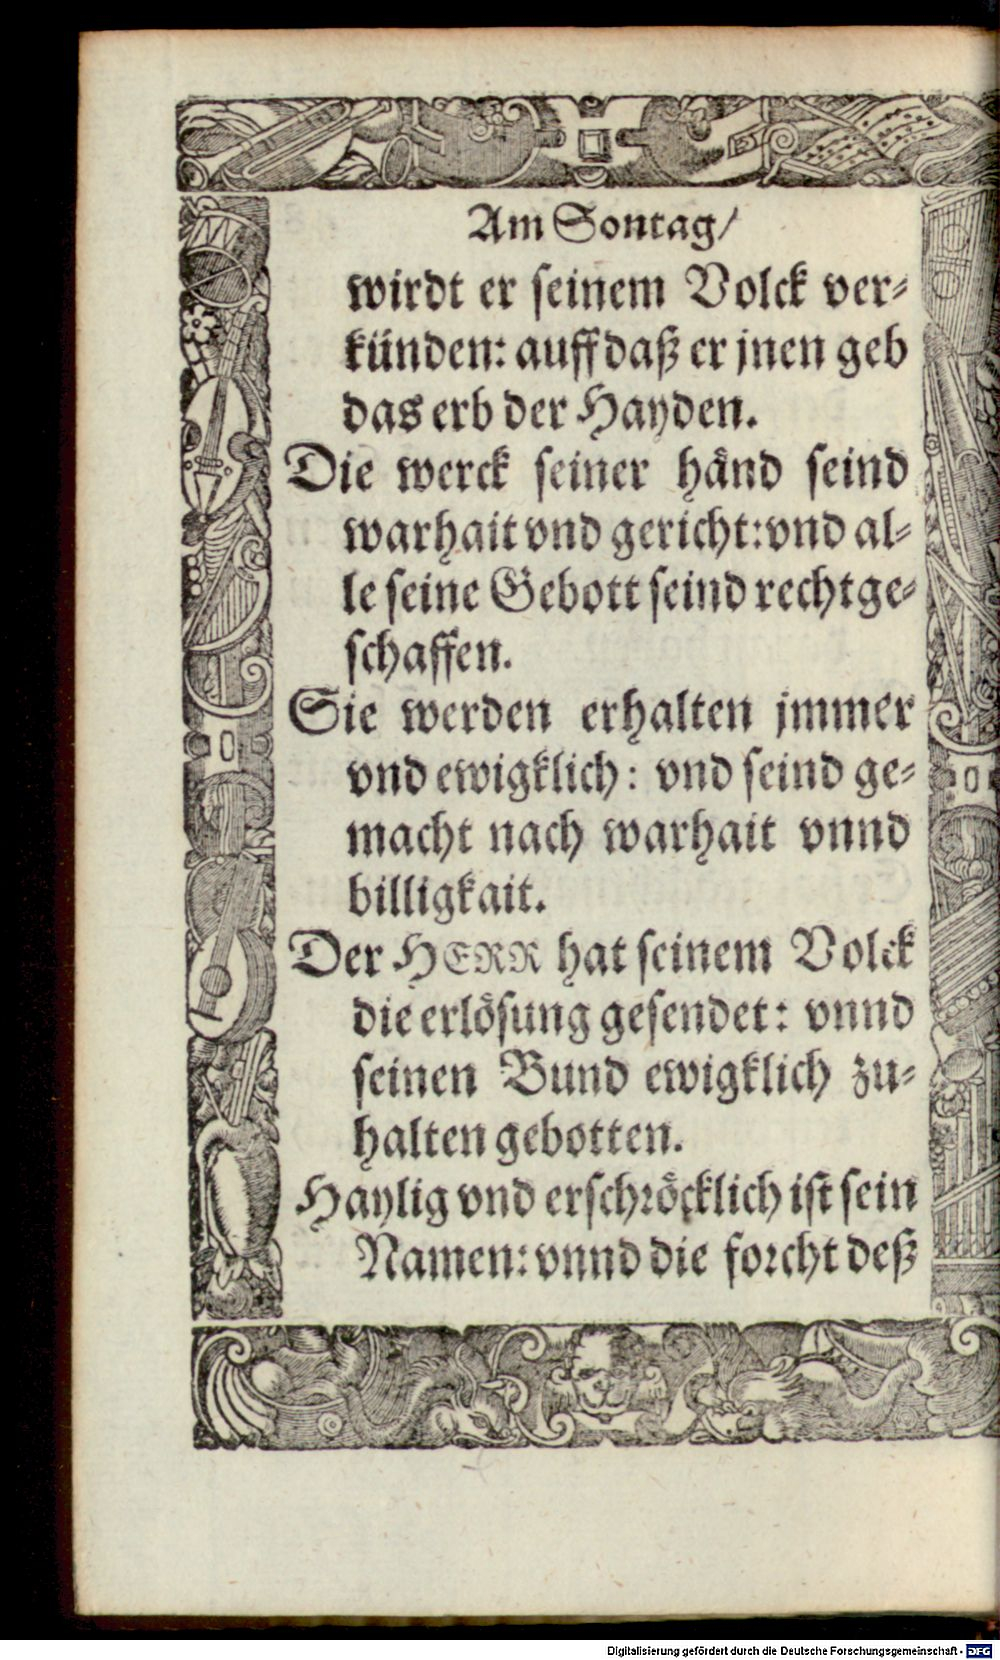 Am Sontag/
wirdt er seinem Volck ver⸗
künden: auff daß er jnen geb
das erb der Hayden.
Die werck seiner händ seind
warhait vnd gericht: vnd al⸗
le seine Gebott seind recht ge⸗
schaffen.
Sie werden erhalten jmmer
vnd ewigklich: vnd seind ge⸗
macht nach warhait vnnd
billigkait.
Der HERR hat seinem Volck
die erlösung gesendet: vnnd
seinen Bund ewigklich zu⸗
halten gebotten.
Haylig vnd erschröcklich ist sein
Namen: vnnd die forcht deß
Digitalisierung gefördert durch die Deutsche Forschungsgemeinschaft - DFG